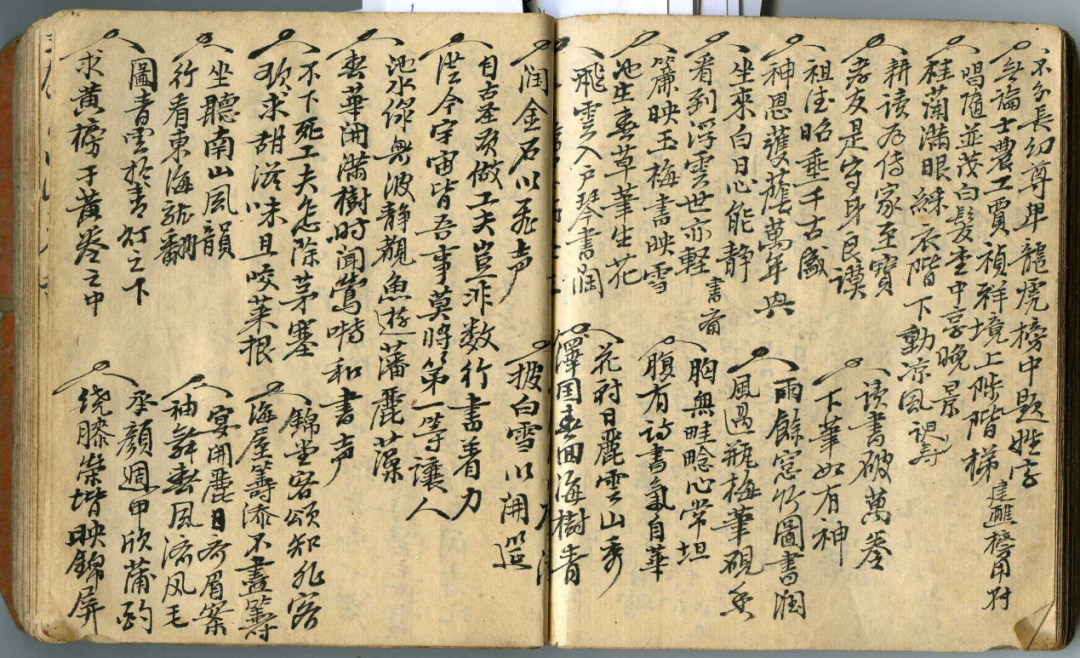 不分長幼尊卑龍虎榜中題姓字
無論士農工賈禎祥境上陞階梯
建醮榜用對
唱隨並茂白髮堂中享晚景
桂蘭滿眼綵衣階下動凉風
祝壽
耕讀為傳家至寶
孝友是守身良謨
祖德昭垂千古盛
神恩護蔭萬年興
坐來白日心能静
看到浮雲世亦軽
書齋
簾映玉梅書映雪
池生春草筆生花
飛雲入户琴書潤
讀書破萬卷
下筆如有神
雨餘窓竹圖書潤
風過瓶梅筆硯香
胸無畦畛心常坦
腹有詩書氣自華
花村日麗雲山秀
澤国春回海樹青
潤金石以飛声
披白雪以開筵
自古圣賢做工夫豈非数行書着力
迋今宇宙皆吾事莫將第一等讓人
池水你無波静觀魚遊藩麗藻
春華開滿樹時闻鶯啼和書声
不下死工夫怎除茅塞
欲求甜滋味且咬菜根
坐聽南山風韻
行看東海龍翻
圖青雲於青灯之下
求黄榜于黄卷之中
錦堂容頌知非客
海屋籌添不盡籌
宴開麗日齊眉案
袖舞春風濟风毛
承顏週甲欣蒲酌
绕膝榮堦映錦屏